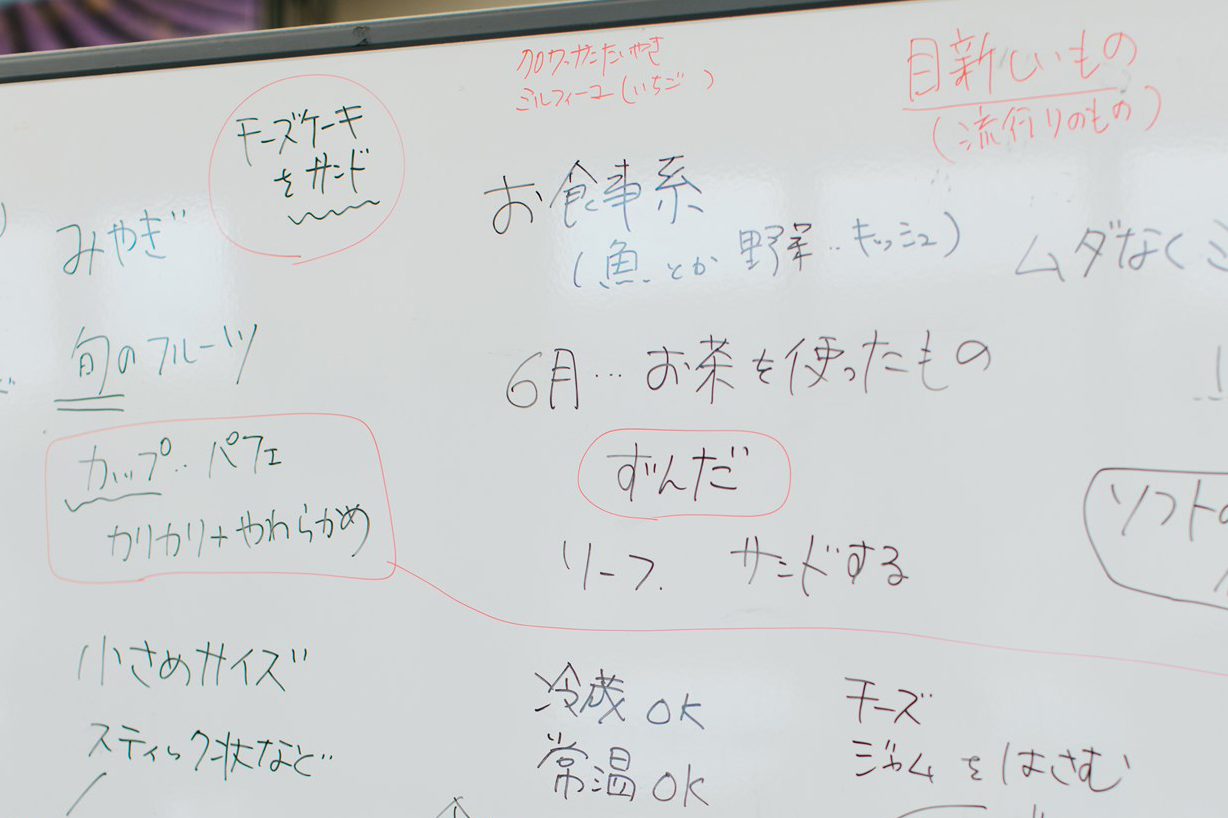 クロワッサンたいやき
ミルフィーユ(いちご)
目新しいもの
(流行りのもの)
チーズケーキ
をサンド
みやぎ
お食事系
(魚とか 野菜‥キッシュ)
ムダなく
旬のフルーツ
6月…お茶を使ったもの
カップ‥パフェ
カリカリ+やわらかめ
ずんだ
リーフ. サンドする
ソフトの
小さめサイズ
スティック状など‥
冷蔵OK
常温OK
チーズ
ジャムをはさむ